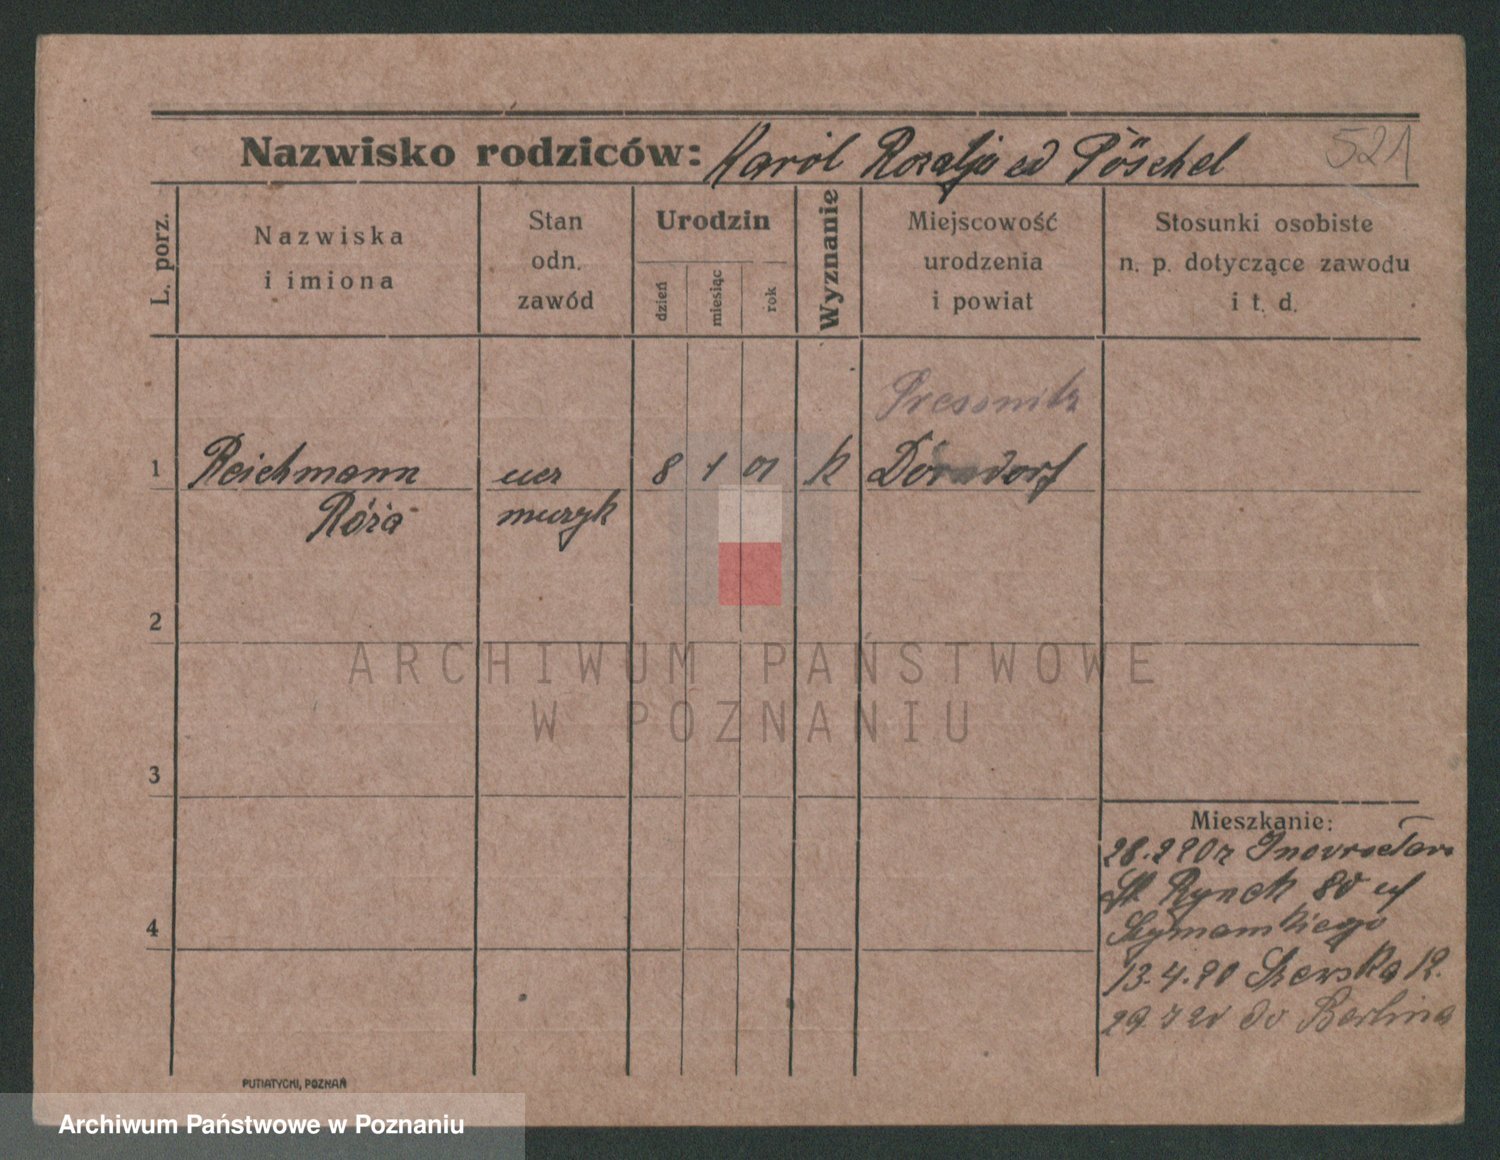 521
Nazwisko rodziców: Karól Rozalja ed Pöschel
L. porz.
Nazwiska
i imiona
Stan
odn.
zawód
Urodzin
dzień
miesiąc
rok
Wyznanie
Miejscowość
urodzenia
i powiat
Stosunki osobiste
n. p. dotyczące zawodu
i t. d.
Pressnitz
1 Reichmann ucz 8 1 01 k Dörndorf
Róża muzyk
2
ARCHIWUM PAŃSTWOWE
W POZNANIU
3
Mieszkanie:
28.2 20 z Inowrocław
St. Rynek 80 u
Szymanskiego
4
13.4.20 12.
29.7 20 do Berlina
PUTIATYCKI, POZNAŃ
Archiwum Państwowe w Poznaniu